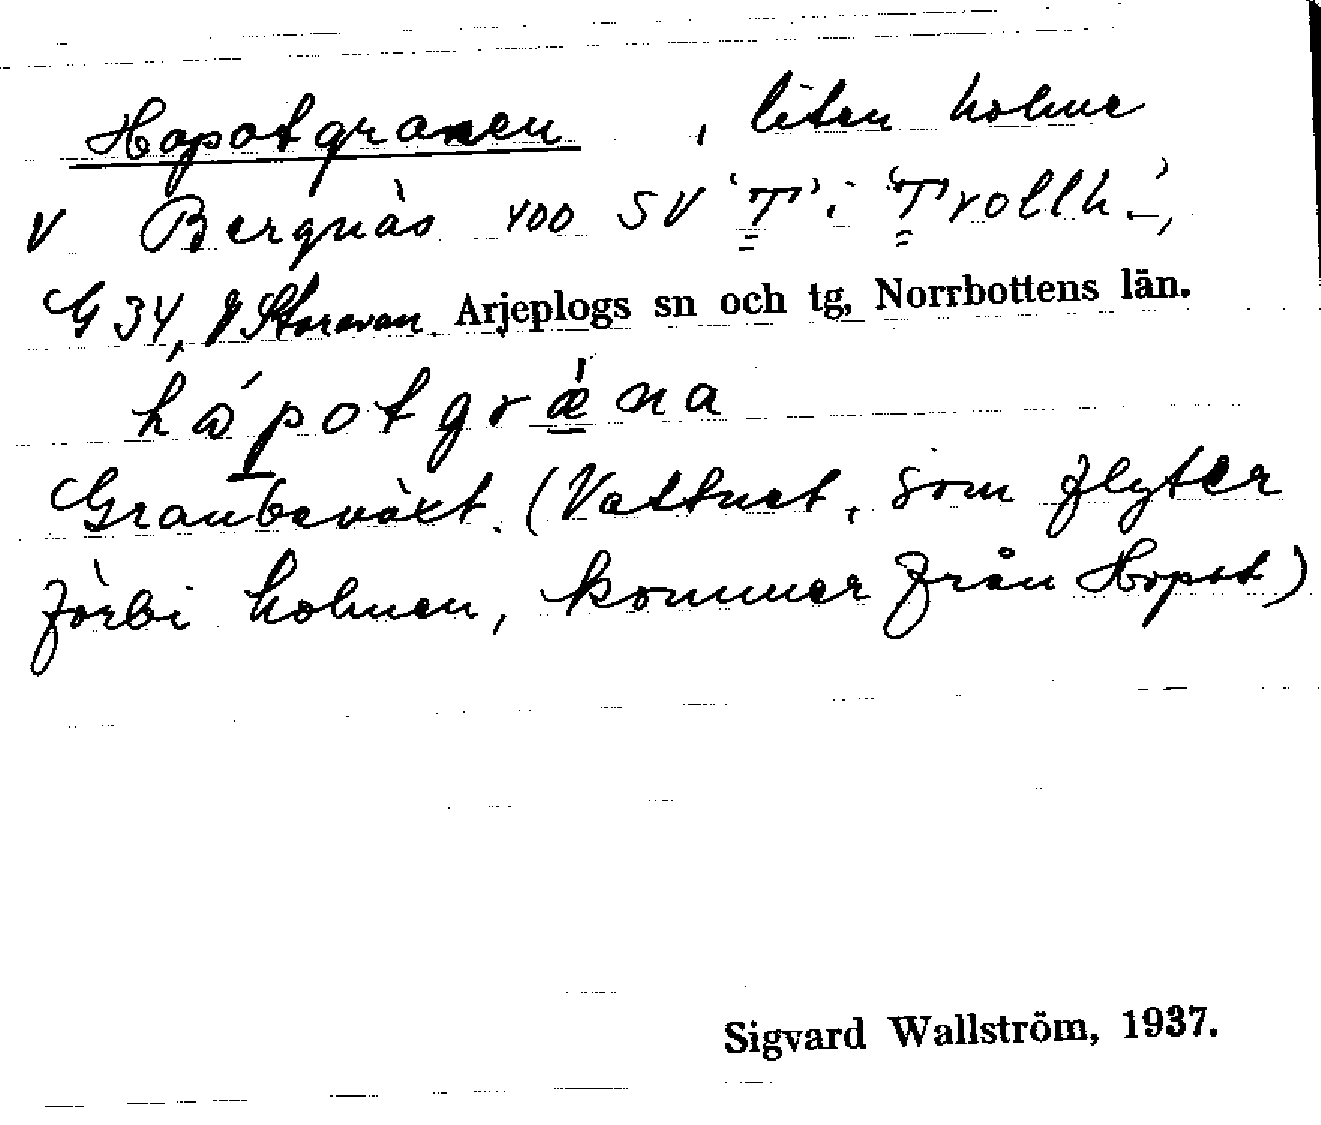 Hopotgranen , liten holme
V Bergnäs 400 SV 'T' i 'Trollh.',
G 34, i Storavan. Arjeplogs sn och tg, Norrbottens län.
hópotgræ̀na
Granbeväxt. (Vattnet, som flyter
förbi holmen, kommer från Hopot)
Sigvard Wallström, 1937.